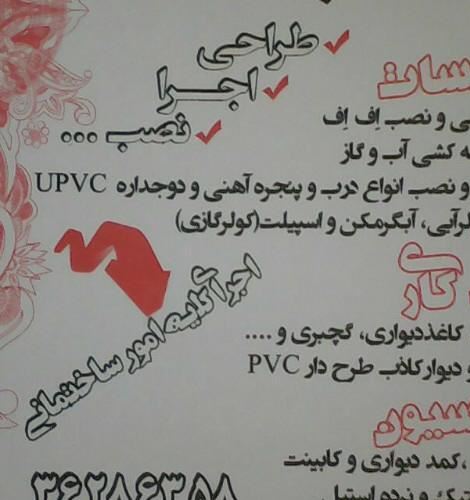 طراحی
اجرا
نصب ...
سات
ی و نصب اِف اِف
ه کشی آب و گاز
و نصب انواع درب و پنجره آهنی و دوجداره UPVC
لرآبی، آبگرمکن و اسپیلت(کولرگازی)
اجرا کلیه امور ساختمانی
کار
کاغذدیواری، گچبری و ....
و دیوارکاذب طرح دار PVC
سیون
، کمد دیواری و کابینت
۳۶۲۸۶۳۵۸